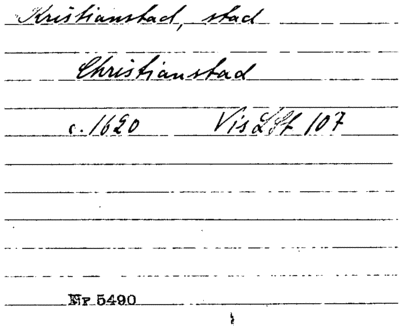 Kristianstad, stad
Christianstad
c. 1620 Vis LSt 107
Nr 5490